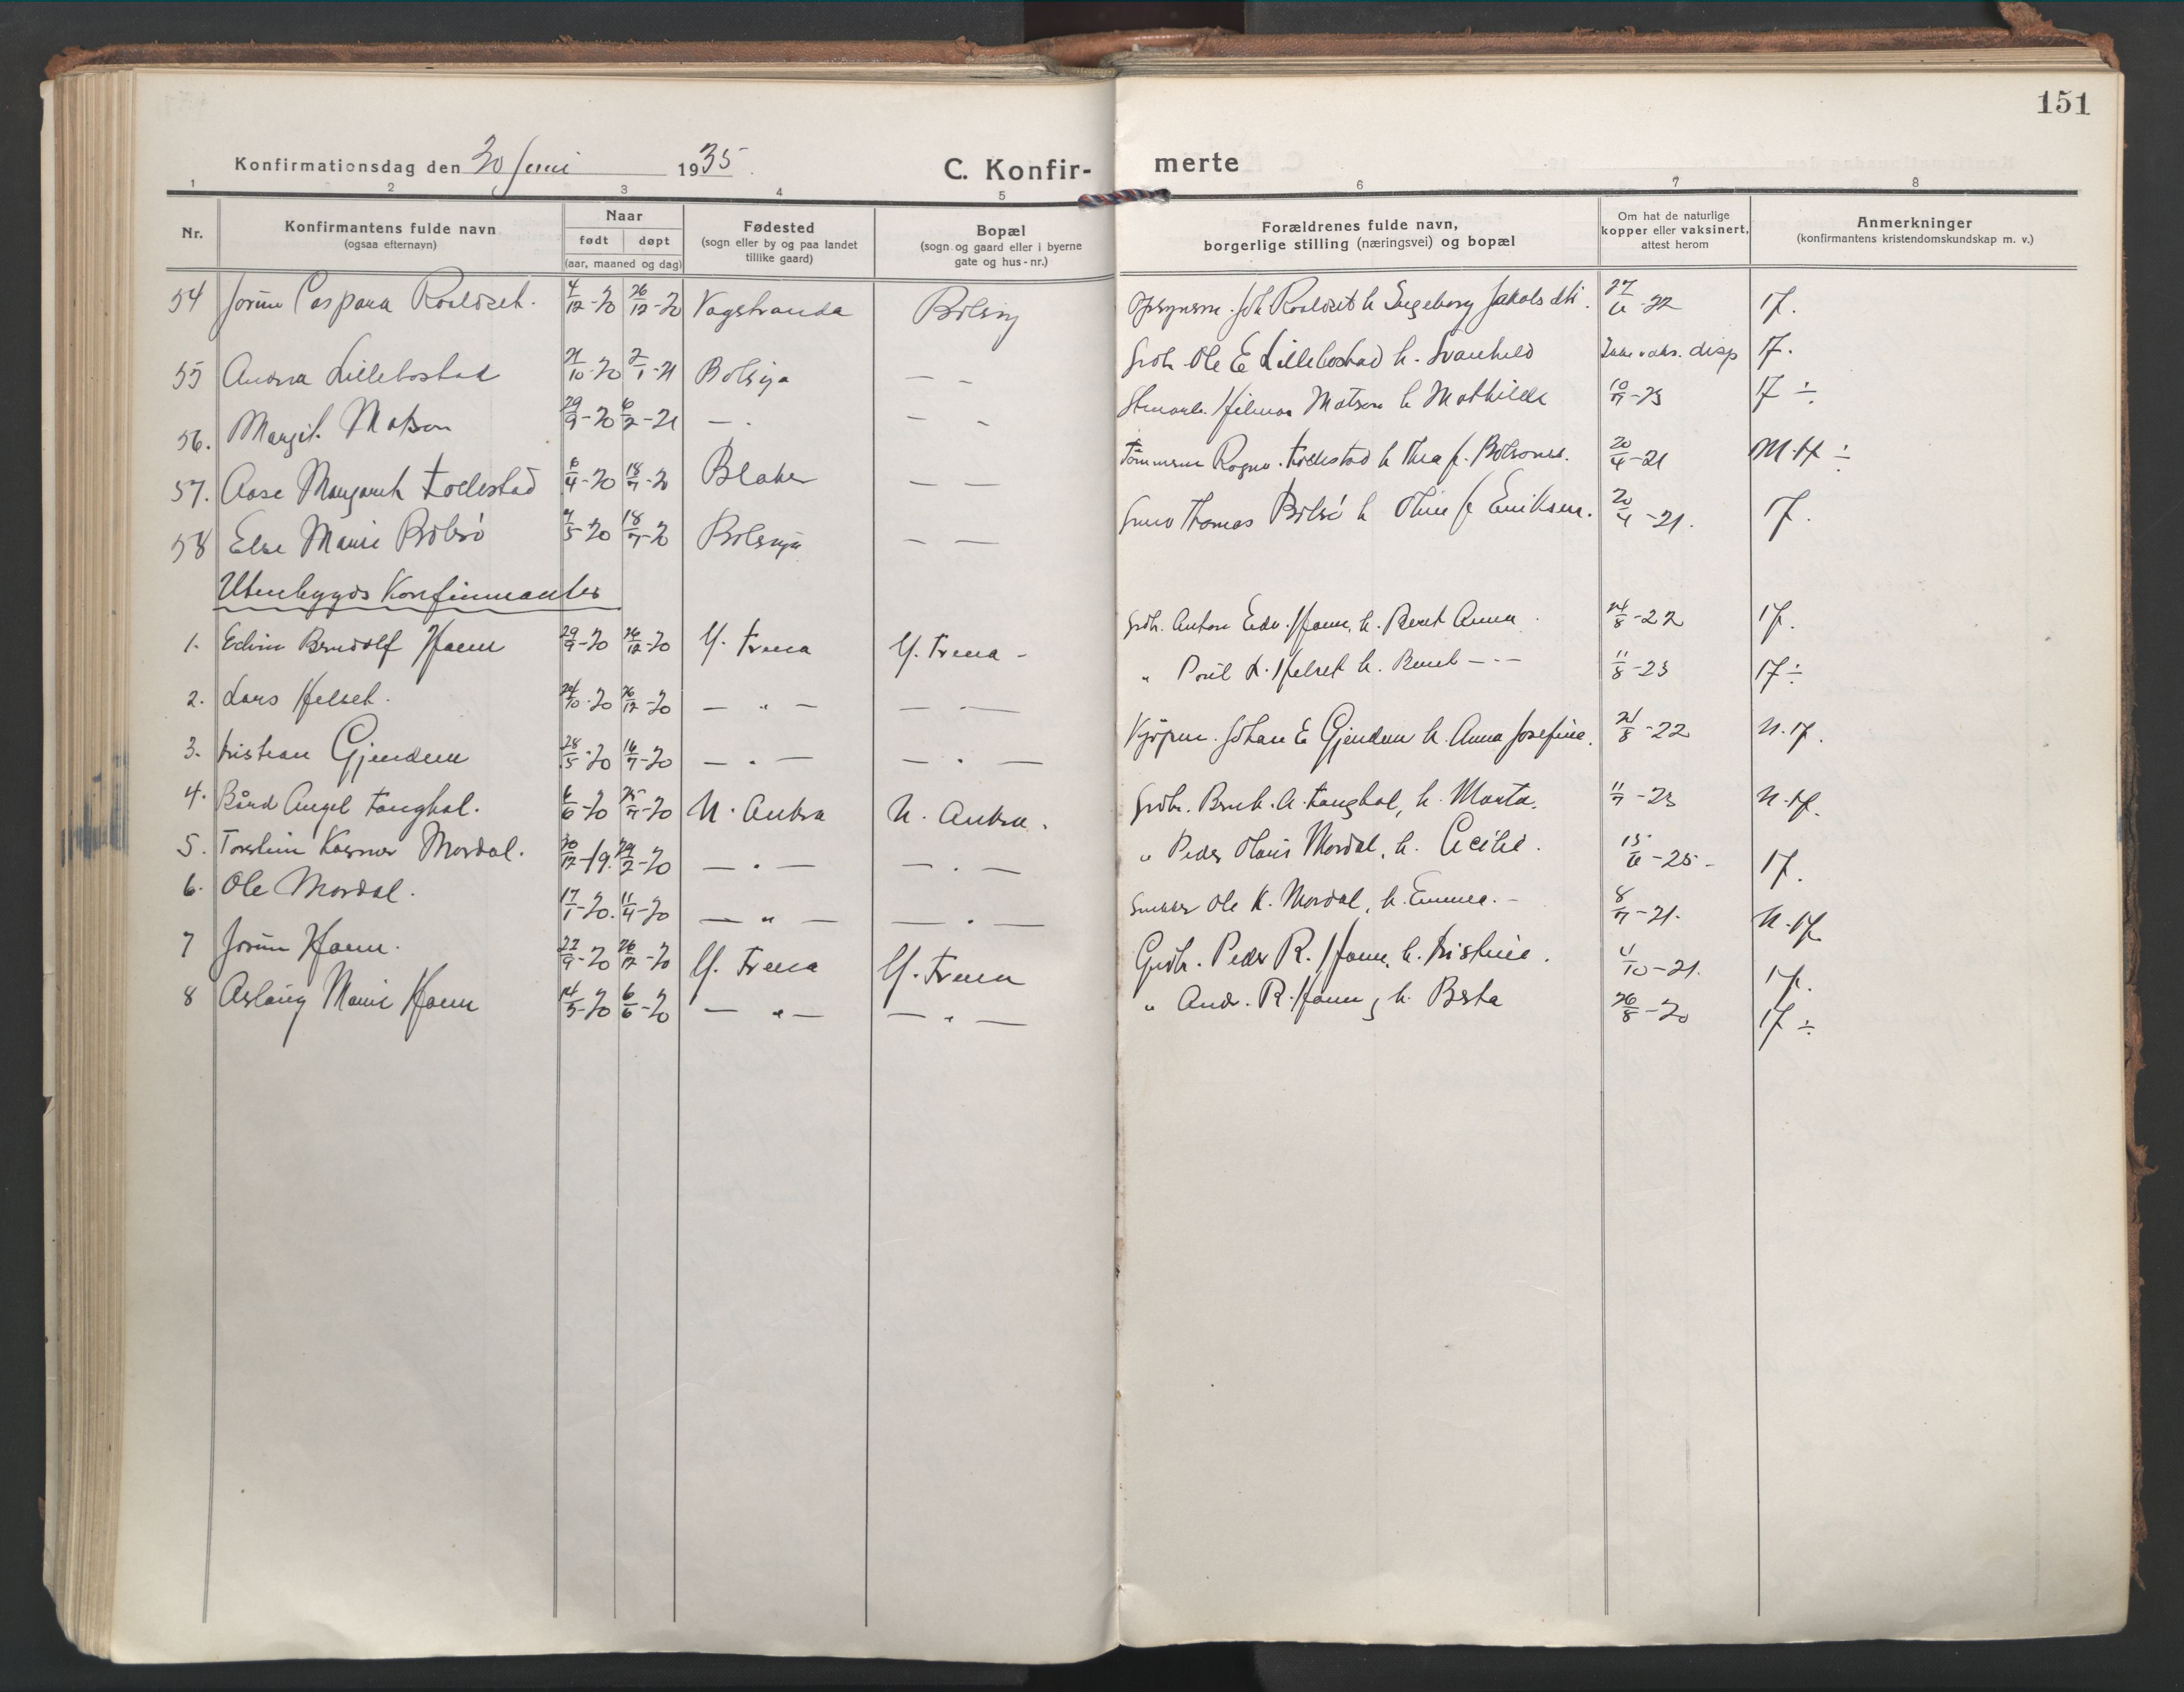 151
Konfirmationsdag den 30 Juni 1935.
C. Konfir-
merte
1 2 3 4 5 6 7 8
Nr.
Konfirmantens fulde navn
(ogsaa efternavn)
Naar
født døpt
(aar, maaned og dag)
Fødested
(sogn eller by og paa landet
tillike gaard)
Bopæl
(sogn og gaard eller i byerne
gate og hus-nr.)
Forældrenes fulde navn,
borgerlige stilling (næringsvei) og bopæl
Om hat de naturlige
kopper eller vaksinert,
attest herom
Anmerkninger
(konfirmantens kristendomskundskap m. v.)
54 Jorun Caspara Roaldset. 4/12-20 26/12-20 Vagstranda Bolsøy Joh. Roaldset h. Engeborg Jakobs dtr. 27/6-22 17.
55 Andrea Lillebostad 21/10-20 2/1-21 Bolsøya — – Grdbr. Ole E Lillebostad h. Svanhild Ikke vaks. disp 17.
56. Margit Matson 29/9-20 6/2-21 — . — - Hilmar Matson h Mathilde 10/7-23 17 ÷
57. Aase Margareth Tollestad 6/4-20 18/7-20 Blaker — — Tømmerm Ragnv. Tollestad h Thea f. Bolsønes. 20/4-21 M.17 ÷
58 Else Marie Bolsø 7/5-20 18/7-20 Bolsøya – — Thomas Bolsø h Oline f Eriksen. 20/4-21. 17.
Utenbygds Konfirmanter
1. Edvin Berndolf Haem 29/9-20 26/12-20 Y. Frena Y. Frena - Grdbr. Anton Edv. Haem, h. Beret Anna 24/8-22 17.
2. Lars Helset. 24/10-20 26/12-20 — " — — . — " Poul L. Helset h. Beret - - - 11/8-23 17 ÷
3. Kristian Gjendem 28/5-20 16/7-20 — . — — . — Kjøpm. Johan E Gjendem h. Anna Josefine. 21/8-22 N.17.
4. Bård Angel Tanghol. 6/6-20 25/7-20 N. Aukra N. Aukra. Grdbr. Bernh. A. Tanghol, h. Marta. 11/7-23 N.17.
5. Torstein Kasper Mordal. 20/12-19. 29/2-20 — . — — . — " Peder Olaus Mordal, h. Cecilie. 15/6-25- 17.
6. Ole Mordal. 17/1-20. 11/4-20 — " — — . — Snekker Ole K. Mordal, h. Emma. - 8/7-21. N.17.
7 Jorun Haem. 22/9-20 26/12-20 Y. Frena Y. Frena Grdbr. Peder R. Haem, h. Kristine. 4/10-21. 17.
8 Aslaug Marie Haem 14/5-20 6/6-20 — " — — " — " Andr. R. Haem, h. Berta 26/8-20 17 ÷